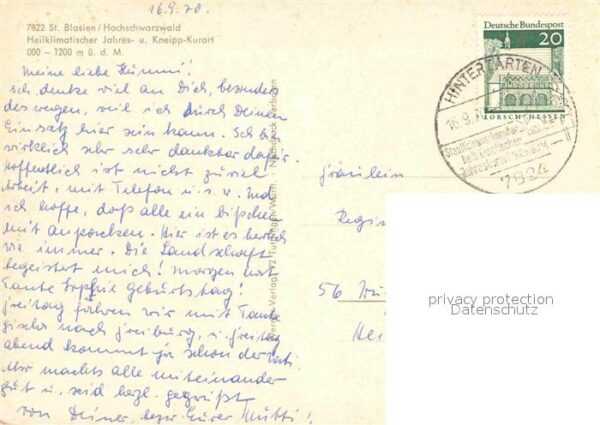 16.9.70.
7822 St. Blasien/Hochschwarzwald
Heilklimatischer Jahres- u. Kneipp-Kurort
800 – 1200 m ü. d. M.
Deutsche Bundespost
20
LORSCH/HESSEN
HINTERZARTEN
16.9.
7824
Meine liebe
Ich denke viel an Dich, besonders
deswegen, weil ich durch Deinen
Einsatz hier sein kann. Ich bin
wirklich sehr sehr dankbar dafür.
Hoffentlich ist nicht zuviel
Arbeit, mit Telefon u.s.w. Und
ich hoffe, daß alle ein bißchen
mit anpacken. Hier ist es herrlich
wie immer. Die Landschaft
begeistert mich! Morgen hat
Tante Sophie Geburtstag!
Freitag fahren wir mit Tante
Gisela nach Freiburg, u. Freitag
abend kommt ja schon der Vati.
Nur machts alle miteinander
gut u. seid herzl. gegrüßt
von Deiner, bezw. Eurer Mutti!
Nachdruck verboten
Fräulein
Regin
56 Wu
privacy protection
Datenschutz